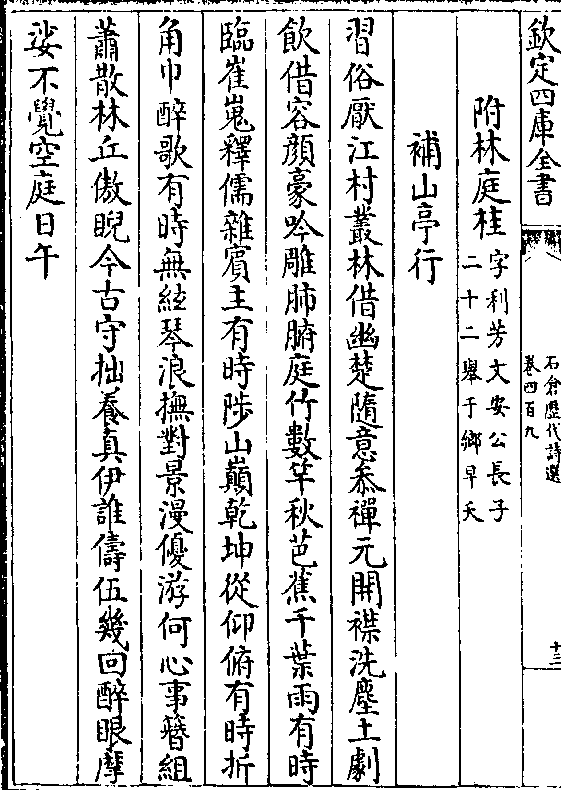 欽定四庫全書
石倉歷代詩選
卷四百九
十三
附林庭桂
字利芳文安公長子
二十二舉于鄉早夭
補山亭行
習俗厭江村叢林借幽楚隨意叅禪元開襟洗塵土劇
飲借容顔豪吟雕肺腑庭竹數竿秋芭蕉千葉雨有時
臨崔嵬釋儒雜賓主有時陟山巔乾坤從仰俯有時折
角巾醉歌有時無絃琴浪撫對景漫優游何心事簪組
蕭散林丘傲睨今古守拙養真伊誰儔伍幾回醉眼摩
娑不覺空庭日午